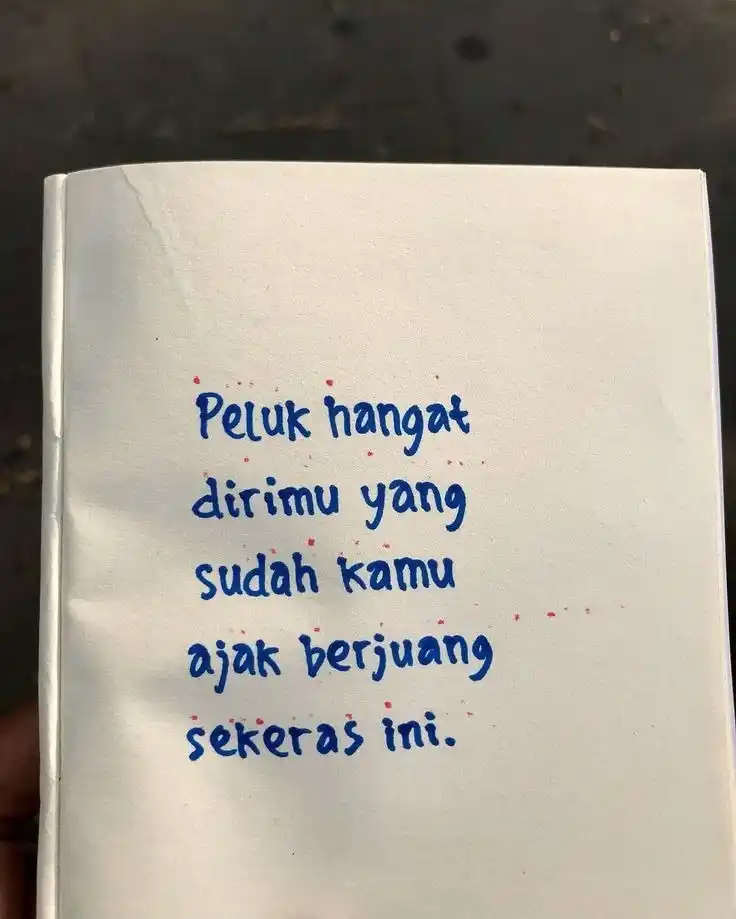 Peluk hangat
dirimu yang
sudah kamu
ajak berjuang
sekeras ini.